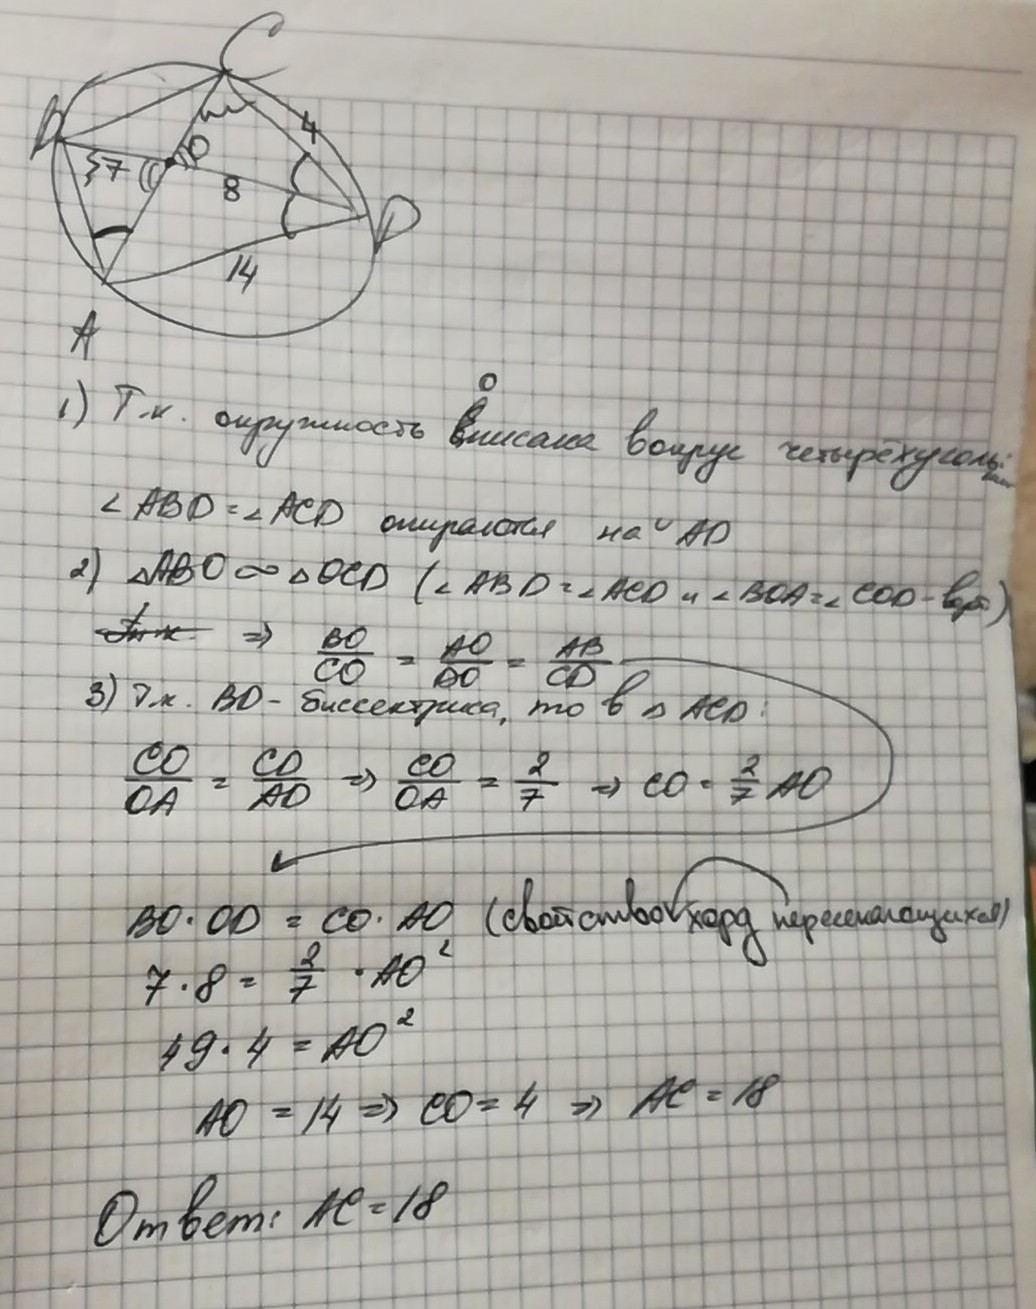 C
B
O
4
7
8
D
14
A
о
1) Т.к. окружность вписана вокруг четырёхугольника
∠ABD = ∠ACD опираются на ◡ AD
2) △ABO ∞ △OCD (∠ABD = ∠ACD и ∠BOA = ∠COD - верт)
=> BO/CO = AO/DO = AB/CD
3) Т.к. BD - биссектриса, то в △ ACD:
CO/OA = CD/AD => CO/OA = 2/7 => CO = 2/7 AO
BO · OD = CO · AO (свойство хорд пересекающихся)
7 · 8 = 2/7 · AO²
49 · 4 = AO²
AO = 14 => CO = 4 => AC = 18
Ответ: AC = 18